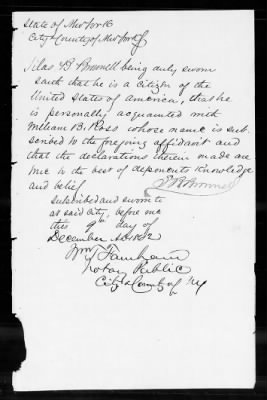 State of New York
City & County of New York
Silas B. Brownell being duly sworn
saith that he is a citizen of the
United States of America, that he
is personally acquainted with
William B. Ross whose name is sub-
scribed to the foregoing affidavit and
that the declarations therein made are
true to the best of deponents knowledge
and belief
S B Brownell
Subscribed and sworn to
at said city, before me
this 9th day of
December AD 1882
Wm Farnham
Notary Public
City & County of NY